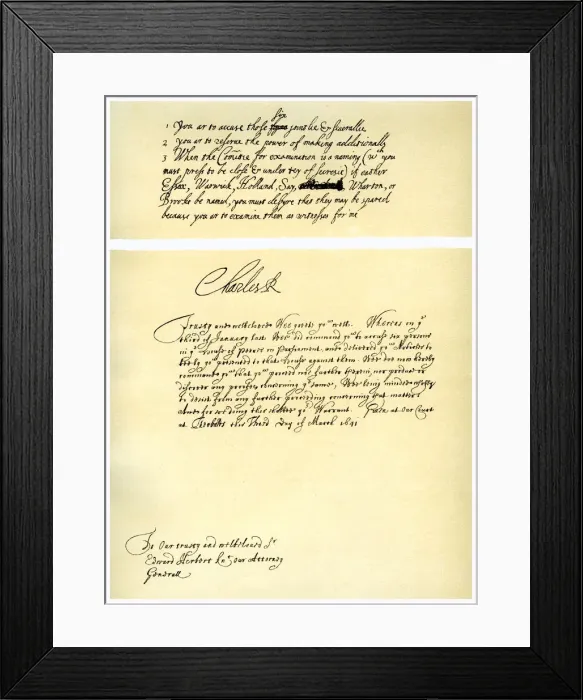 six
1 You ar to accuse those joinlie & severallie
2 you ar to reserve the power of making additionall
3 When the Comitie for examination is a naming, (wch you
must press to be close & under tey of secresie) if eather
Essex, Warwick, Holland, Say, Wharton, or
Brooke be named, you must desyre that they may be spared
because you ar to examine them as witnesses for me
Charles R
Trusty and welbeloved Wee greete you well. Whereas in ye
third of January last Wee did command you to accuse six persons
in ye house of Peeres in Parliament, and delivered yo
to bee by you presented to that house against them. Wee doe now hereby
command you that you proceed noe further therein, nor produce or
discover any proofes concerning ye same, Wee being minded
to desist from any further proceeding concerning that matter
And for soe doing this yor Warrant. Given at our Court
at this Third day of March 1641
To Our trusty and welbeloved Sr
Edward Herbert Knt our Attorney
Generall